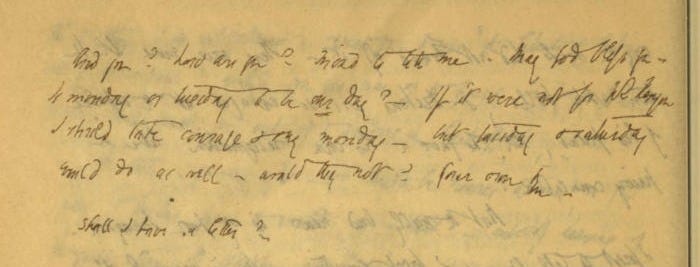 And you? how are you? Mind to tell me. May God bless you–
Is monday or tuesday to be our day?– If it were not for Mr. Kenyon
I should take courage & say monday– but tuesday & saturday
would do as well– would they not? Your own Ba–
shall I have a letter?